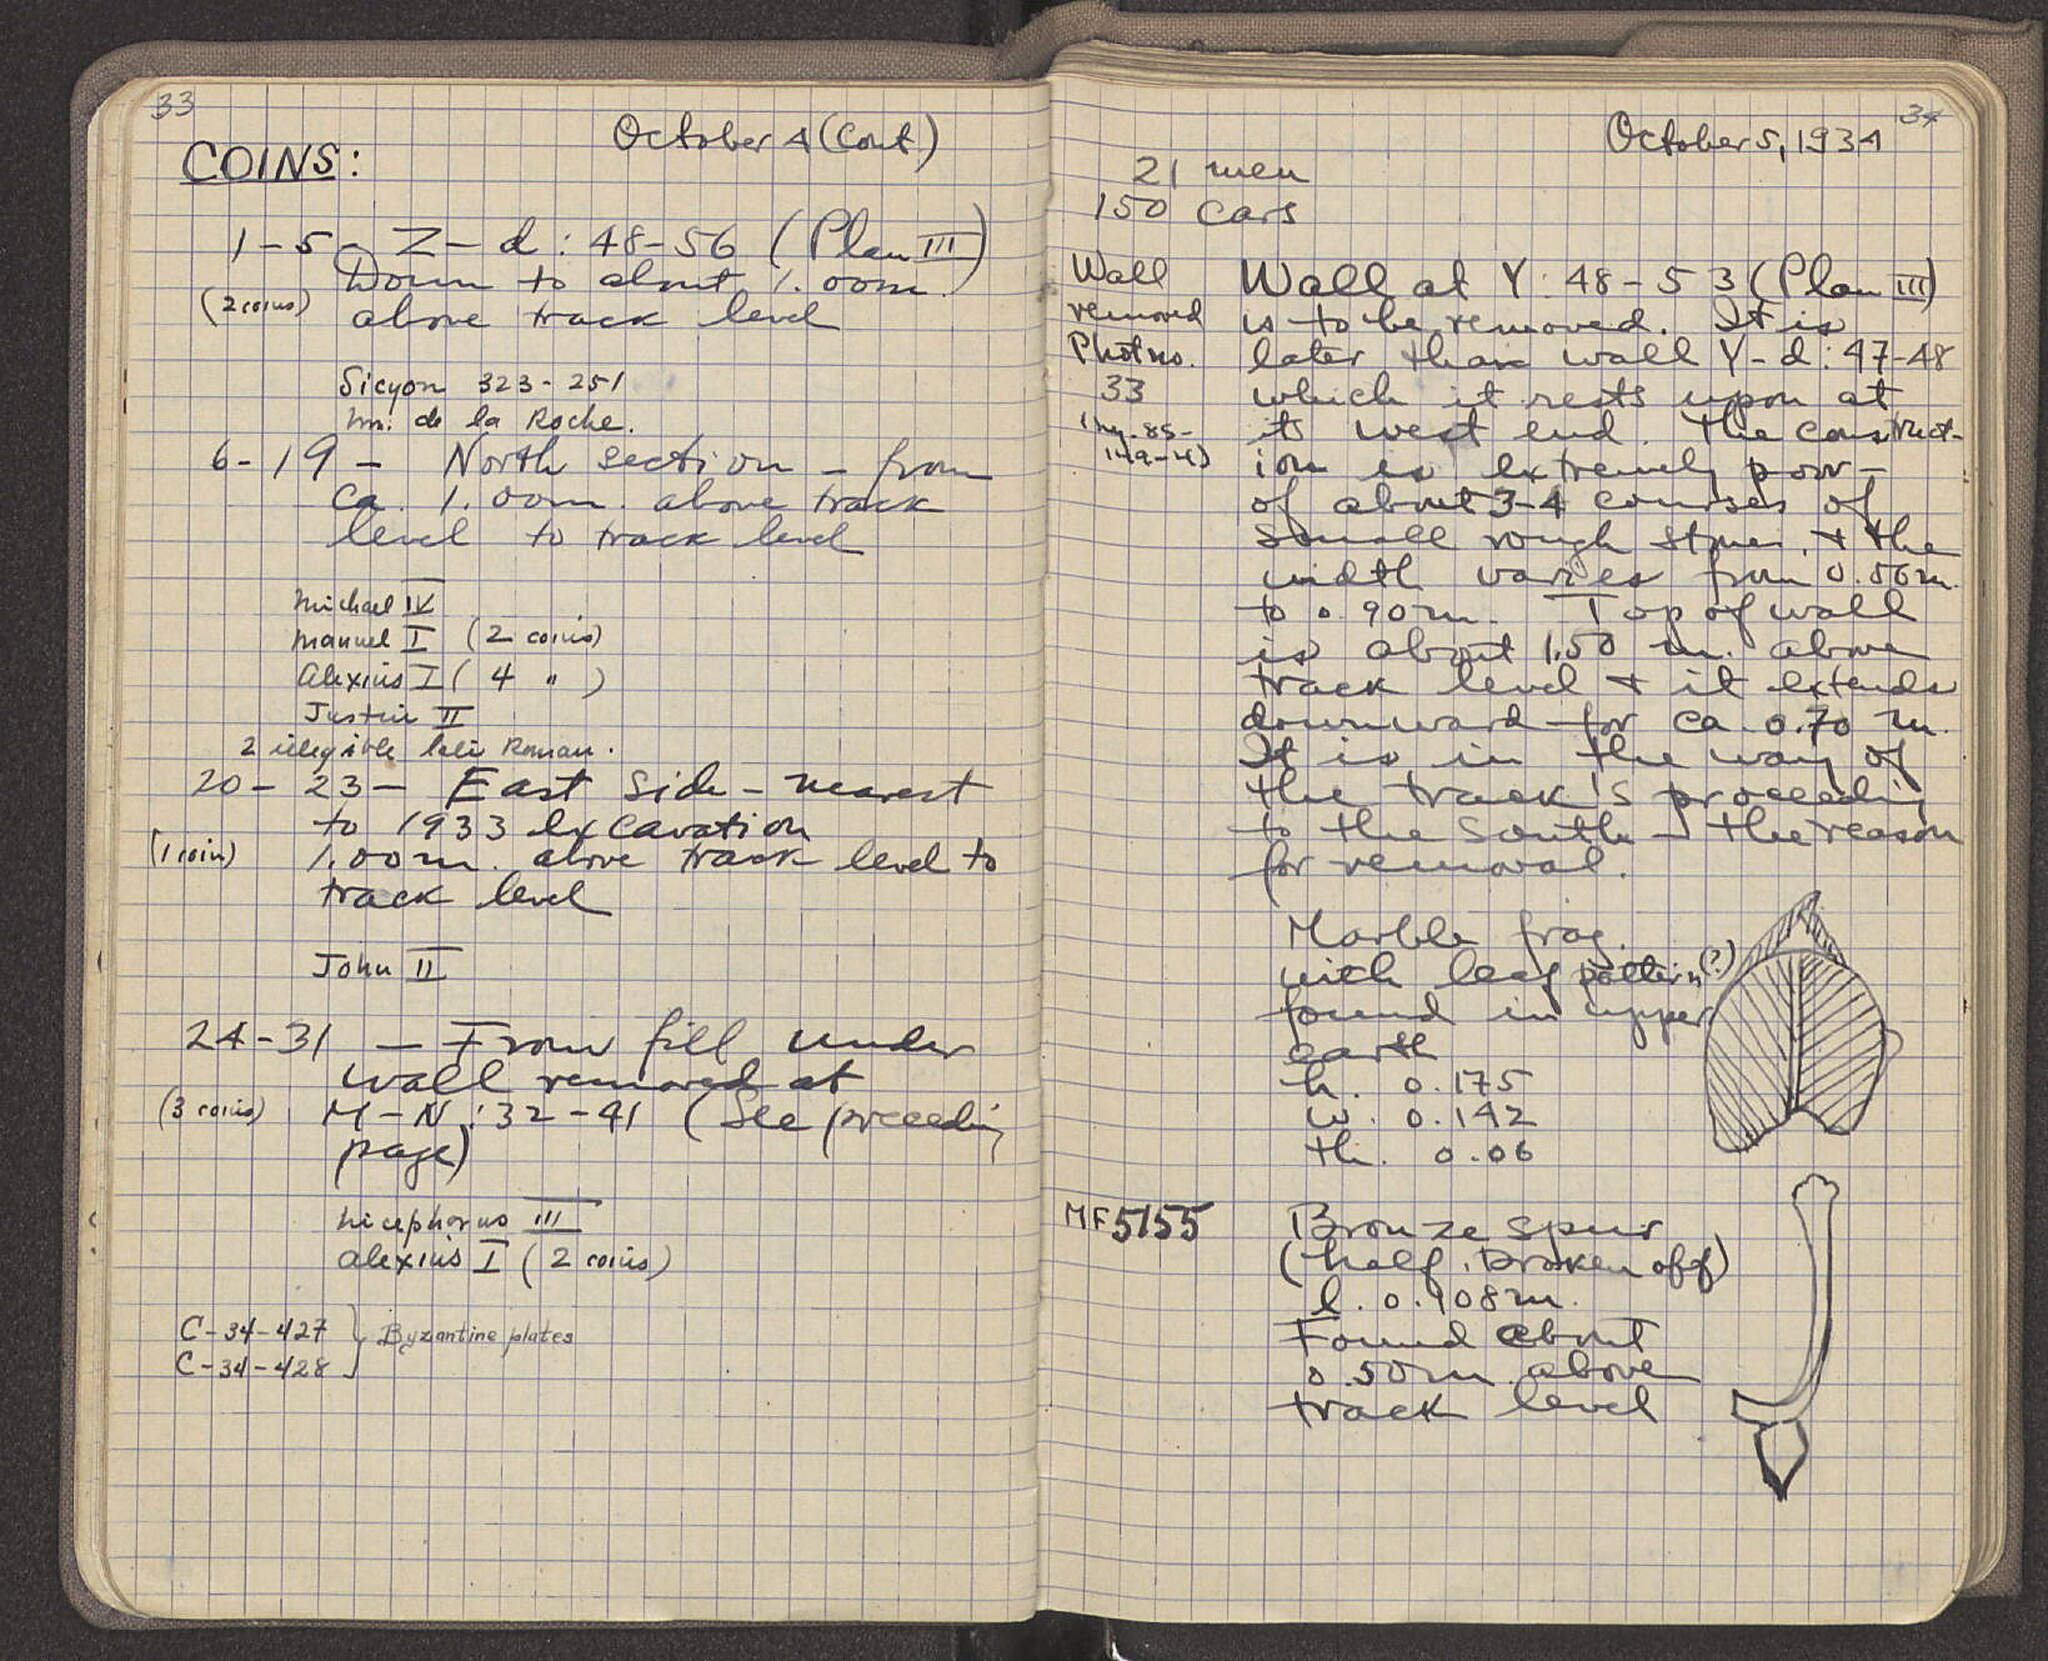 33
October 4 (Cont.)
COINS:
1-5 - Z-d: 48-56 (Plan III)
Down to about 1.00m.
(2 coins) above track level
Sicyon 323-251
de la Roche.
6-19 - North section - from
ca. 1.00m. above track
level to track level
Michael IV
Manuel I (2 coins)
Alexius I (4 " )
Justin II
2 illegible late Roman.
20-23 - East side - nearest
to 1933 excavation
(1 coin) 1.00m. above track level to
track level
John II
24-31 - From fill under
wall removed at
(3 coins) M-N: 32-41 (See preceding
page)
Nicephorus III
Alexius I (2 coins)
C-34-427 } Byzantine plates
C-34-428
34
October 5, 1934
21 men
150 cars
Wall
removed
Phot no.
33
Wall at Y: 48-53 (Plan III)
is to be removed. It is
later than wall Y-d: 47-48
which it rests upon at
its west end. The construct-
ion is extremely poor -
of about 3-4 courses of
small rough stones, + the
width varies from 0.56m.
to 0.90m. Top of wall
is about 1.50 m. above
track level + it extends
downward for ca. 0.70 m.
It is in the way of
the track's proceeding
to the south - the reason
for removal.
Marble frag.
with leaf pattern (?)
found in upper
earth
h. 0.175
w. 0.142
th. 0.06
MF 5155 Bronze spur
(half broken off)
l. 0.108m.
Found about
0.50m. above
track level